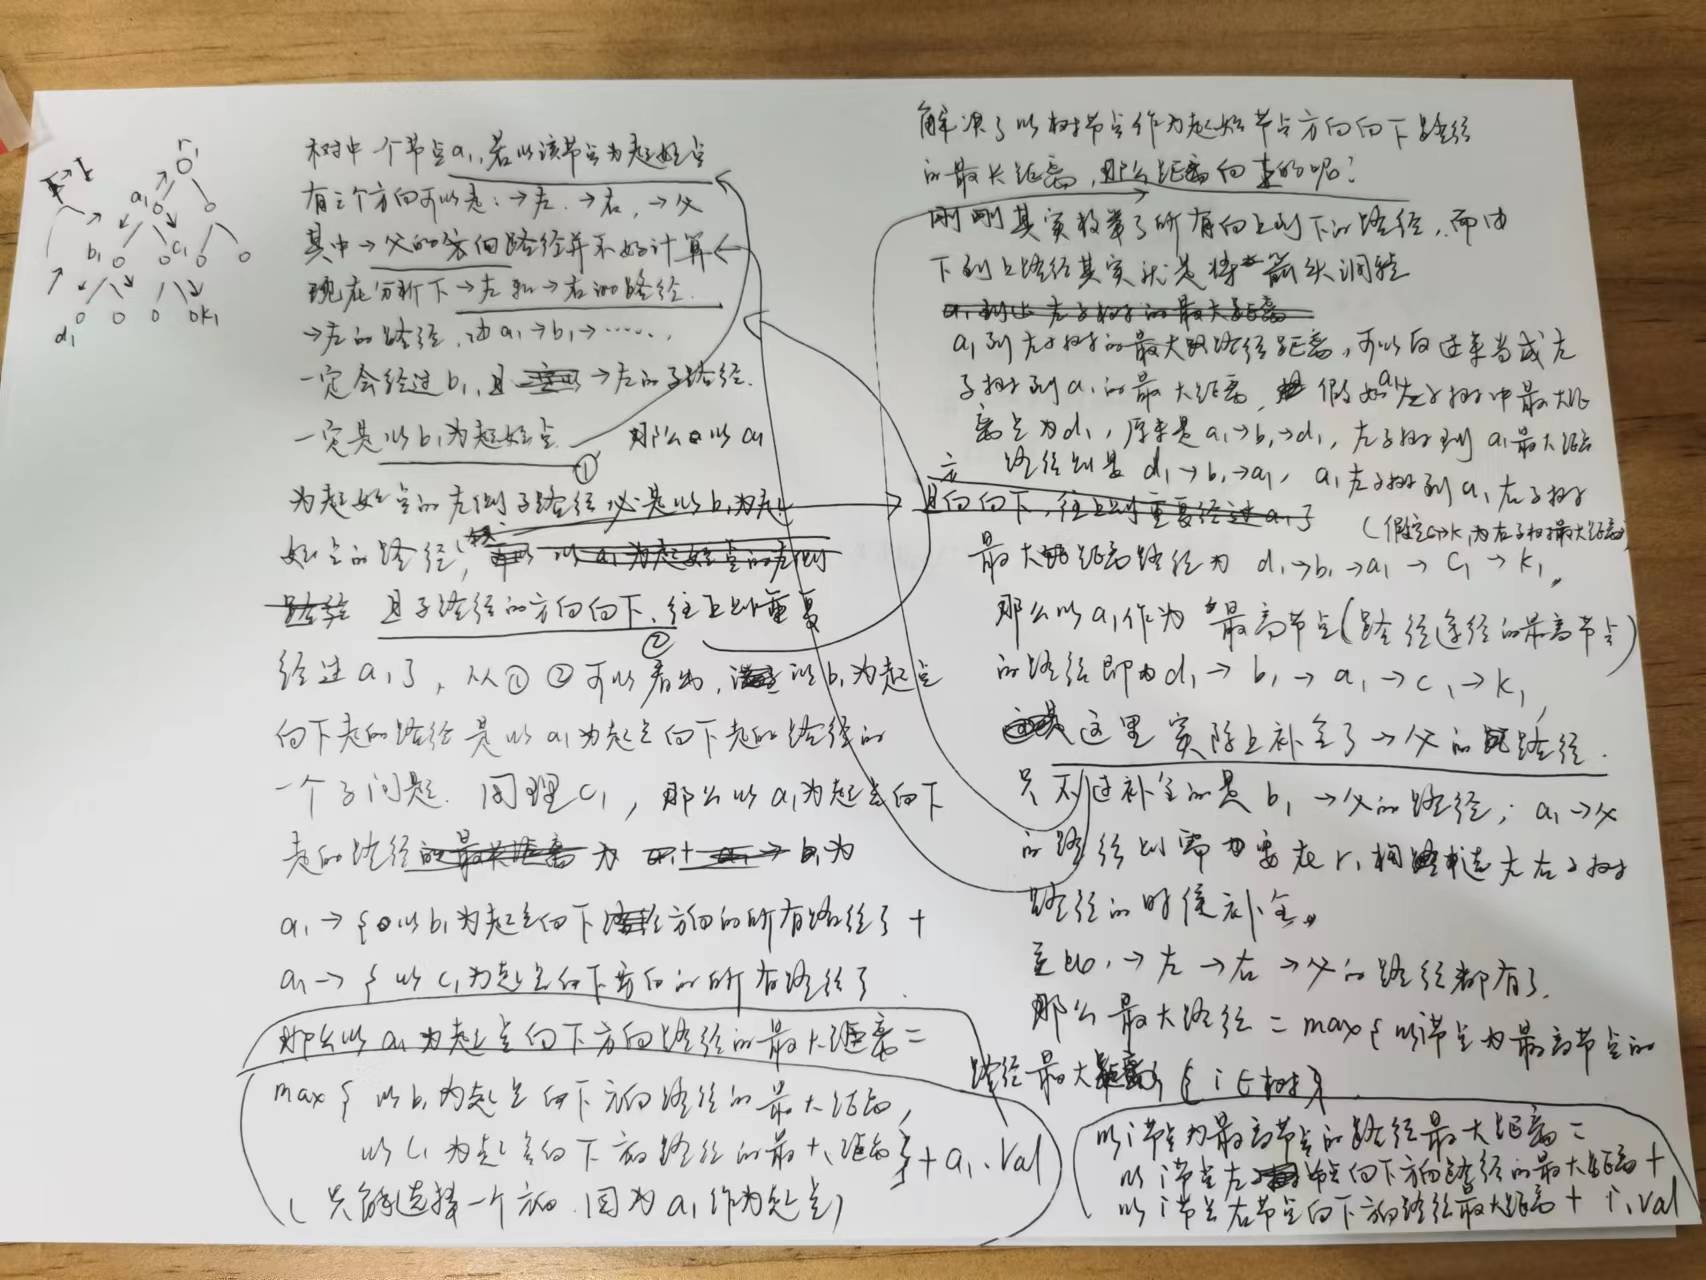 r₁
a₁
b₁
c₁
d₁
k₁
树中一个节点a₁,若以该节点为起始点
有三个方向可以走:→左.→右,→父
其中→父的方向路径并不好计算
现在分析下→左和→右的路径.
→左的路径,由a₁→b₁→……
一定会经过b₁,且→左的子路径.
一定是以b₁为起始点. 那么以a₁
①
为起始点的左侧子路径必是以b₁为起
始点的路径,
且子路径的方向向下,往上则重复
②
经过a₁了,从①②可以看出,以b₁为起点
向下走的路径是以a₁为起点向下走的路径的
一个子问题.同理c₁,那么以a₁为起点向下
走的路径为
a₁→{以b₁为起点向下方向的所有路径}+
a₁→{以c₁为起点向下方向的所有路径}.
那么以a₁为起点向下方向路径的最大距离=
max{以b₁为起点向下方向路径的最大距离,
以c₁为起点向下方向路径的最大距离}+a₁.val
(只能选择一个方向.因为a₁作为起点)
解决了以树节点作为起始节点方向向下路径
的最长距离,那么距离向上的呢?
刚刚其实枚举了所有向上到下的路径,而由
下到上路径其实就是将箭头调转
a₁到左子树的最大路径距离,可以反过来当成左
子树到a₁的最大距离,假如a₁左子树中最大距
离点为d₁,原来是a₁→b₁→d₁,左子树到a₁最大距离
路径则是d₁→b₁→a₁,a₁左子树到a₁右子树
(假定c₁→k₁为右子树最大距离)
最大距离路径为d₁→b₁→a₁→c₁→k₁,
那么以a₁作为最高节点(路径途径的最高节点)
的路径即为d₁→b₁→a₁→c₁→k₁,
这里实际上补全了→父的路径.
只不过补全的是b₁→父的路径;a₁→父
的路径则需要在r₁构造左右子树
路径的时候补全。
至此,→左→右→父的路径都有了.
那么最大路径=max{以i节点为最高节点的
路径最大距离}{i∈树}
以i节点为最高节点的路径最大距离=
以i节点左节点向下方向路径的最大距离+
以i节点右节点向下方向路径最大距离+i.val